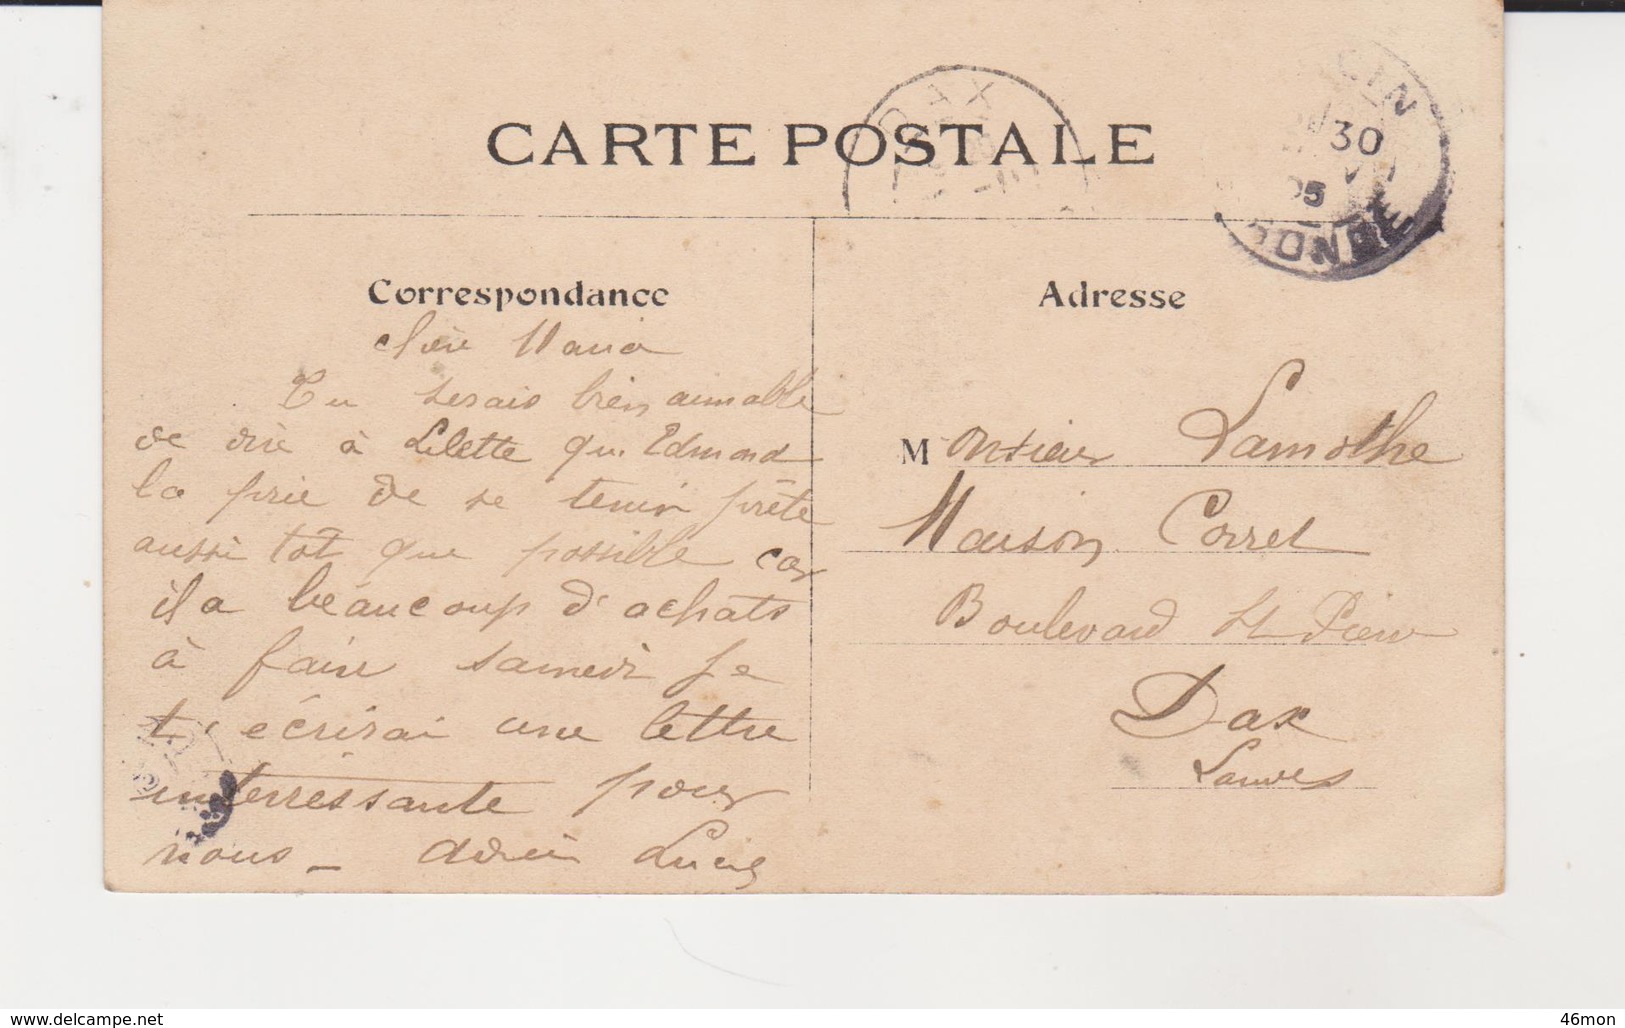 CARTE POSTALE
DAX
CIN
30
05
RONDE
Correspondance
Adresse
chère Maria
Tu serais bien aimable
de dire à Lilette que Edmond
la prie de se tenir prête
aussi tot que possible car
il a beaucoup d'achats
à faire samedi je
t'écrirai une lettre
interressante pour
nous — Lucie
Monsieur Lamothe
Maison Corret
Boulevard St Pierre
Dax
Landes
www.delcampe.net
46mon